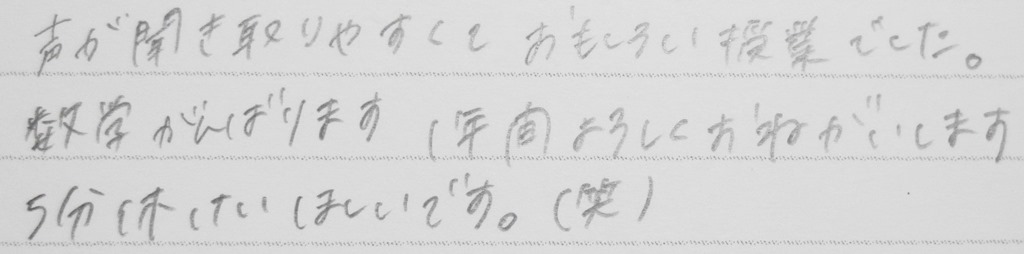 声が聞き取りやすくて おもしろい授業でした。
数学がんばります 1年間よろしくおねがいします
5分休けい ほしいです。(笑)